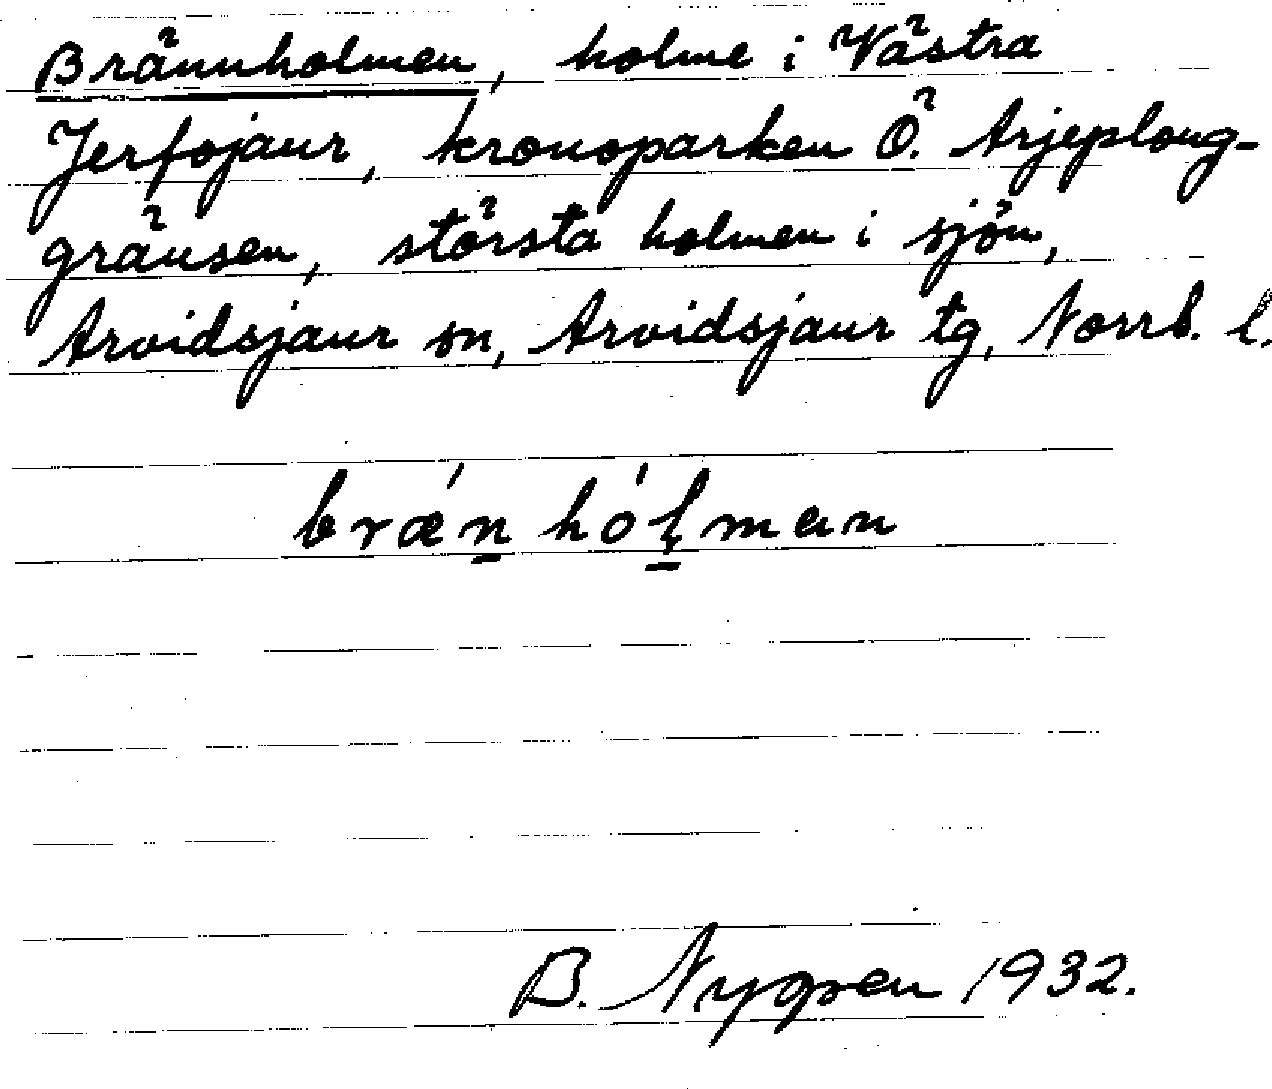 Brännholmen, holme i Västra
Jerfojaur, kronoparken Ö. Arjeploug-
gränsen, största holmen i sjön,
Arvidsjaur sn, Arvidsjaur tg, Norrb. l.
bræ´n hó´lmαn
B. Nygren 1932.